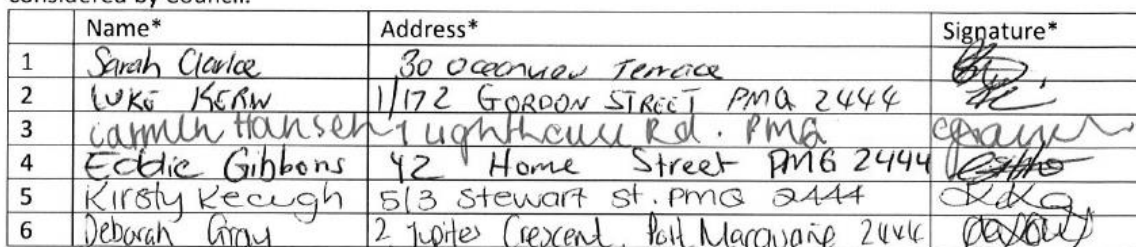 considered by Council.
Name* Address* Signature*
1 Sarah Clarke 30 Oceanview Terrace
2 LUKE KERW 1/172 GORDON STREET PMQ 2444
3 Carmen Hansen Lighthouse Rd. PMQ
4 Eddie Gibbons 42 Home Street PMQ 2444
5 Kirsty Keough 5/3 Stewart St. PMQ 2444
6 Deborah Gray 2 Jupiter Crescent, Port Macquarie 2444